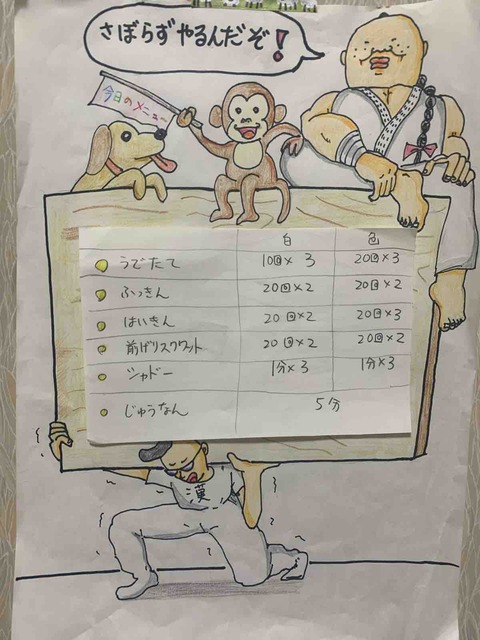 さぼらずやるんだぞ!
今日のメニュー
白 色
うでたて 10回×3 20回×3
ふっきん 20回×2 20回×2
はいきん 20回×2 20回×3
前げりスクワット 20回×2 20回×2
シャドー 1分×3 1分×3
じゅうなん 5分
漢